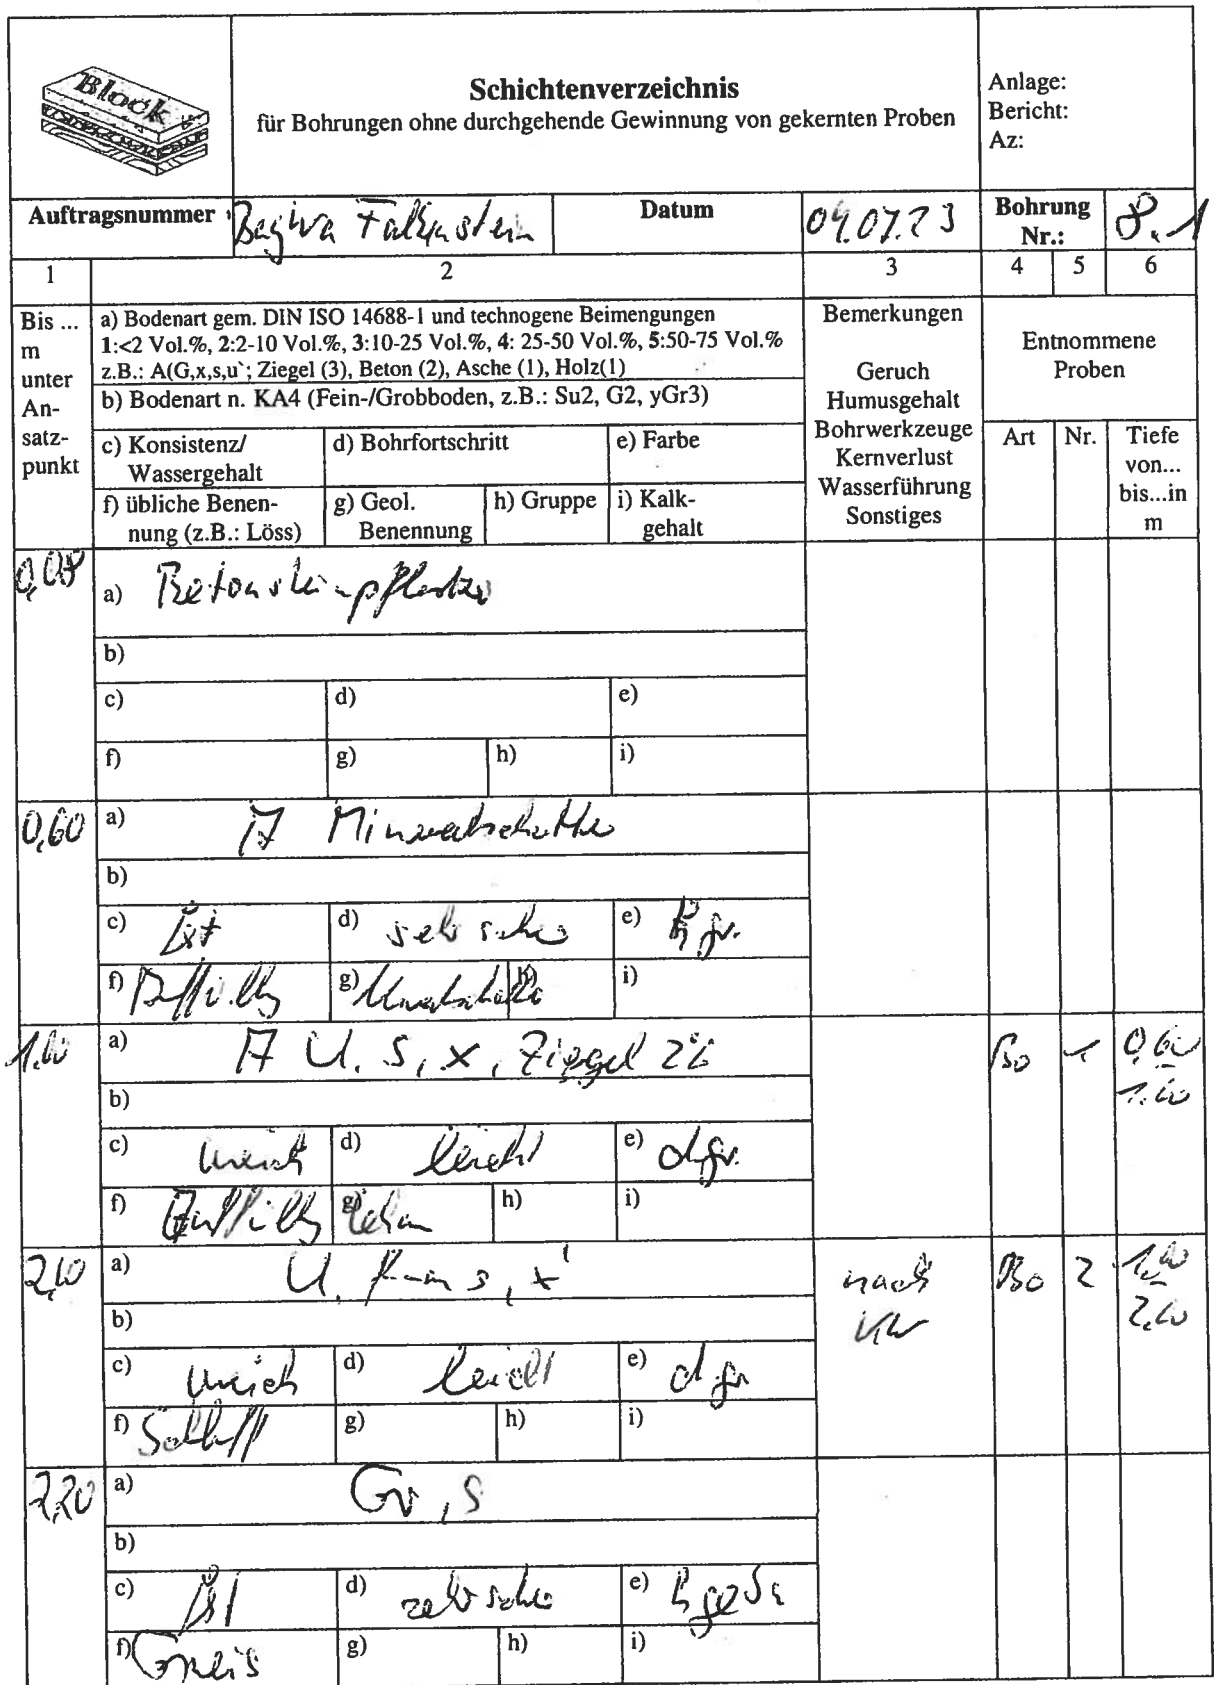 Block
Schichtenverzeichnis
für Bohrungen ohne durchgehende Gewinnung von gekernten Proben
Anlage:
Bericht:
Az:
Auftragsnummer
Datum
04.07.23
Bohrung
Nr.:
8.1
1
2
3
4
5
6
Bis ...
m
unter
An-
satz-
punkt
a) Bodenart gem. DIN ISO 14688-1 und technogene Beimengungen
1:<2 Vol.%, 2:2-10 Vol.%, 3:10-25 Vol.%, 4: 25-50 Vol.%, 5:50-75 Vol.%
z.B.: A(G,x,s,u`; Ziegel (3), Beton (2), Asche (1), Holz(1)
b) Bodenart n. KA4 (Fein-/Grobboden, z.B.: Su2, G2, yGr3)
c) Konsistenz/
Wassergehalt
d) Bohrfortschritt
e) Farbe
f) übliche Benen-
nung (z.B.: Löss)
g) Geol.
Benennung
h) Gruppe
i) Kalk-
gehalt
Bemerkungen
Geruch
Humusgehalt
Bohrwerkzeuge
Kernverlust
Wasserführung
Sonstiges
Entnommene
Proben
Art
Nr.
Tiefe
von...
bis...in
m
0,08
a) Betonsteinpflaster
b)
c)
d)
e)
f)
g)
h)
i)
0,60
a) A Mineralschotter
b)
c)
d) sehr schwer
e)
f) Auffüllg
g)
h)
i)
1,00
a) A U, s, x, Ziegel
Bo
1
0,60
1,00
b)
c) weich
d) leicht
e) d.gr.
f) Auffüllg
g) Lehm
h)
i)
2,00
a) U, f-ms, x'
nach
KW
Bo
2
1,00
2,00
b)
c) weich
d) leicht
e) d.gr
f)
g)
h)
i)
2,20
a) Gr, s
b)
c)
d) sehr schwer
e)
f) Gneis
g)
h)
i)